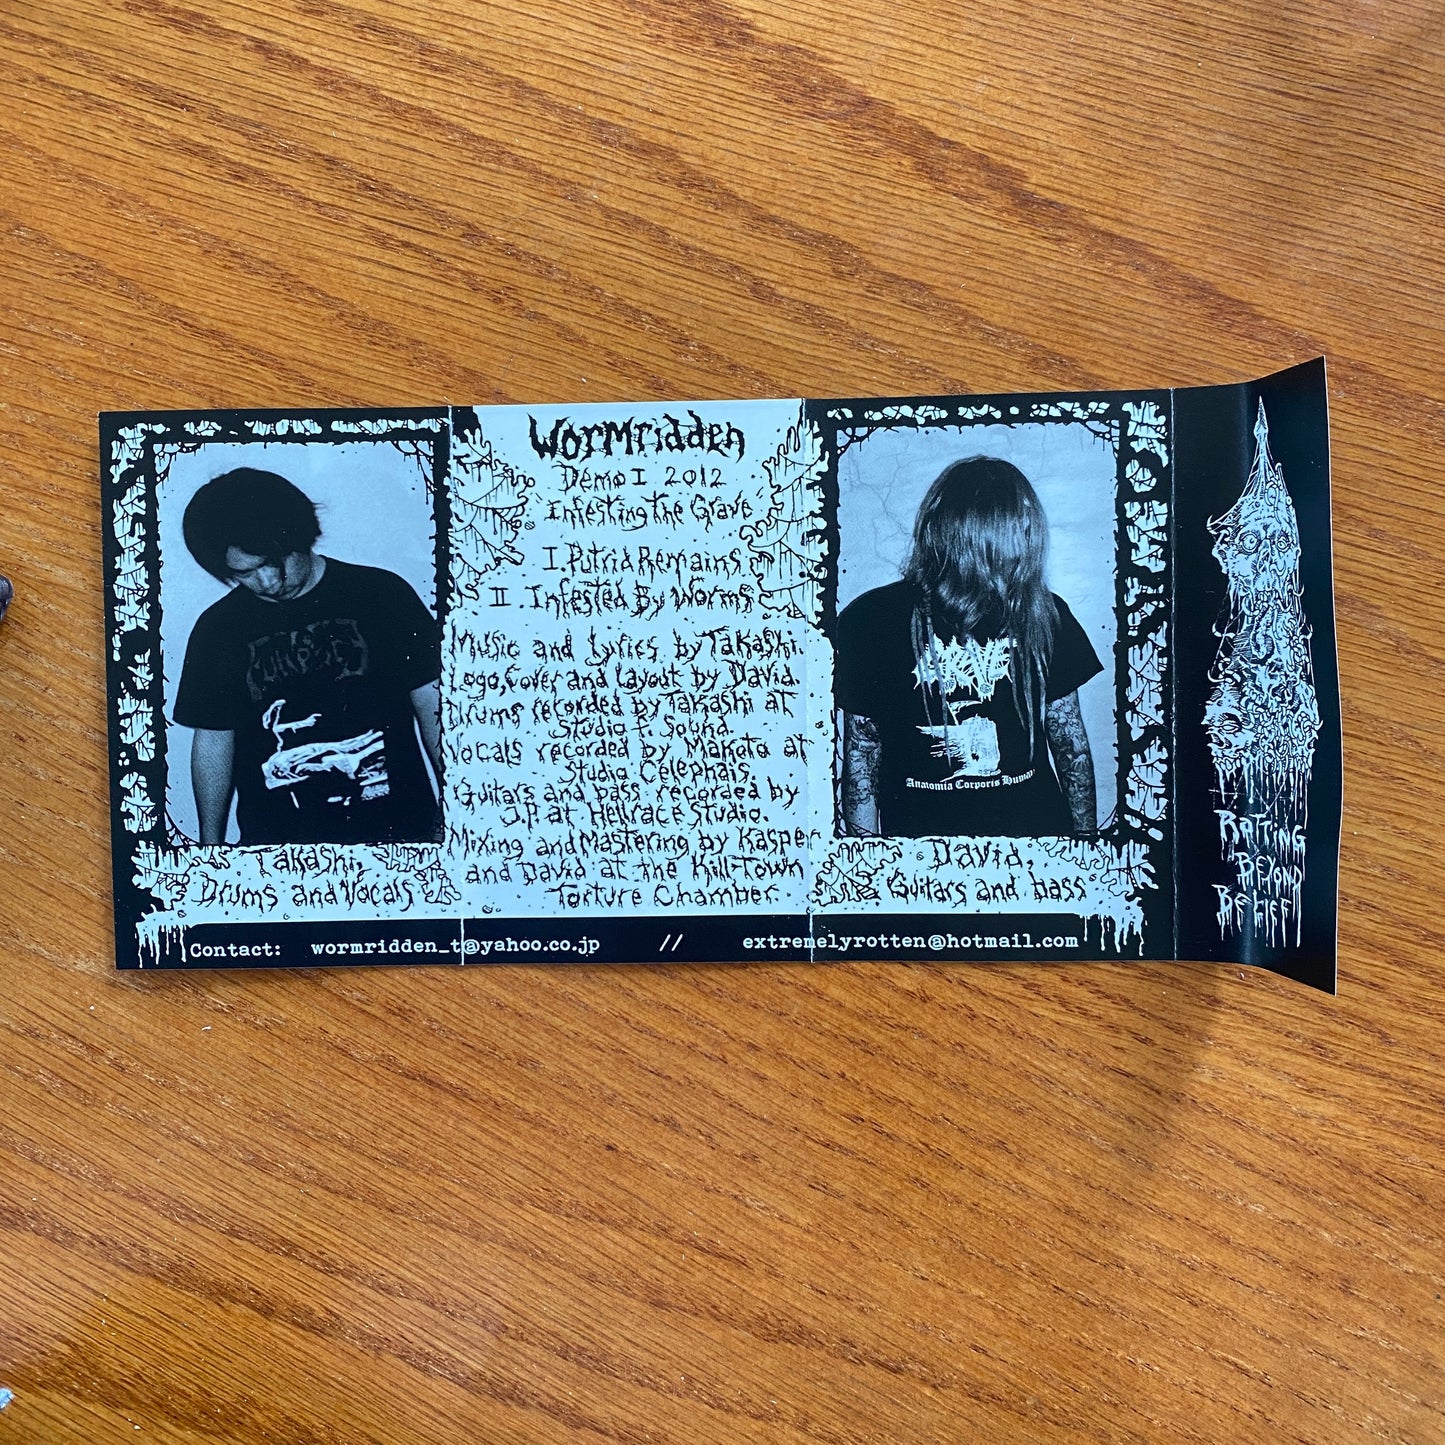 Takashi,
Drums and Vocals
Wormridden
Demo I 2012
Infesting the Grave
I. Putrid Remains
II. Infested By Worms
Music and lyrics by Takashi.
Logo, Cover and Layout by David.
Drums recorded by Takashi at
Studio f. Sound.
Vocals recorded by Makoto at
Studio Celephais.
Guitars and bass recorded by
J.P at Hellrace Studio.
Mixing and Mastering by Kasper
and David at the Kill-Town
Torture Chamber.
Anatomia Corporis Human
David,
Guitars and bass
Contact: wormridden_t@yahoo.co.jp // extremelyrotten@hotmail.com
Rotting
Beyond
Belief